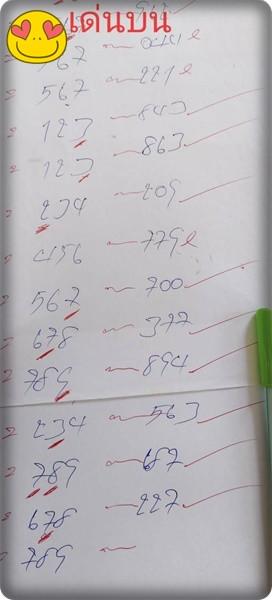 เด่นบน
567
567 ~ 221
123 ~ 843
123 ~ 863
234 ~ 209
456 ~ 779
567 ~ 700
678 ~ 377
789 ~ 894
234 ~ 563
789 ~ 687
678 ~ 227
789 ~